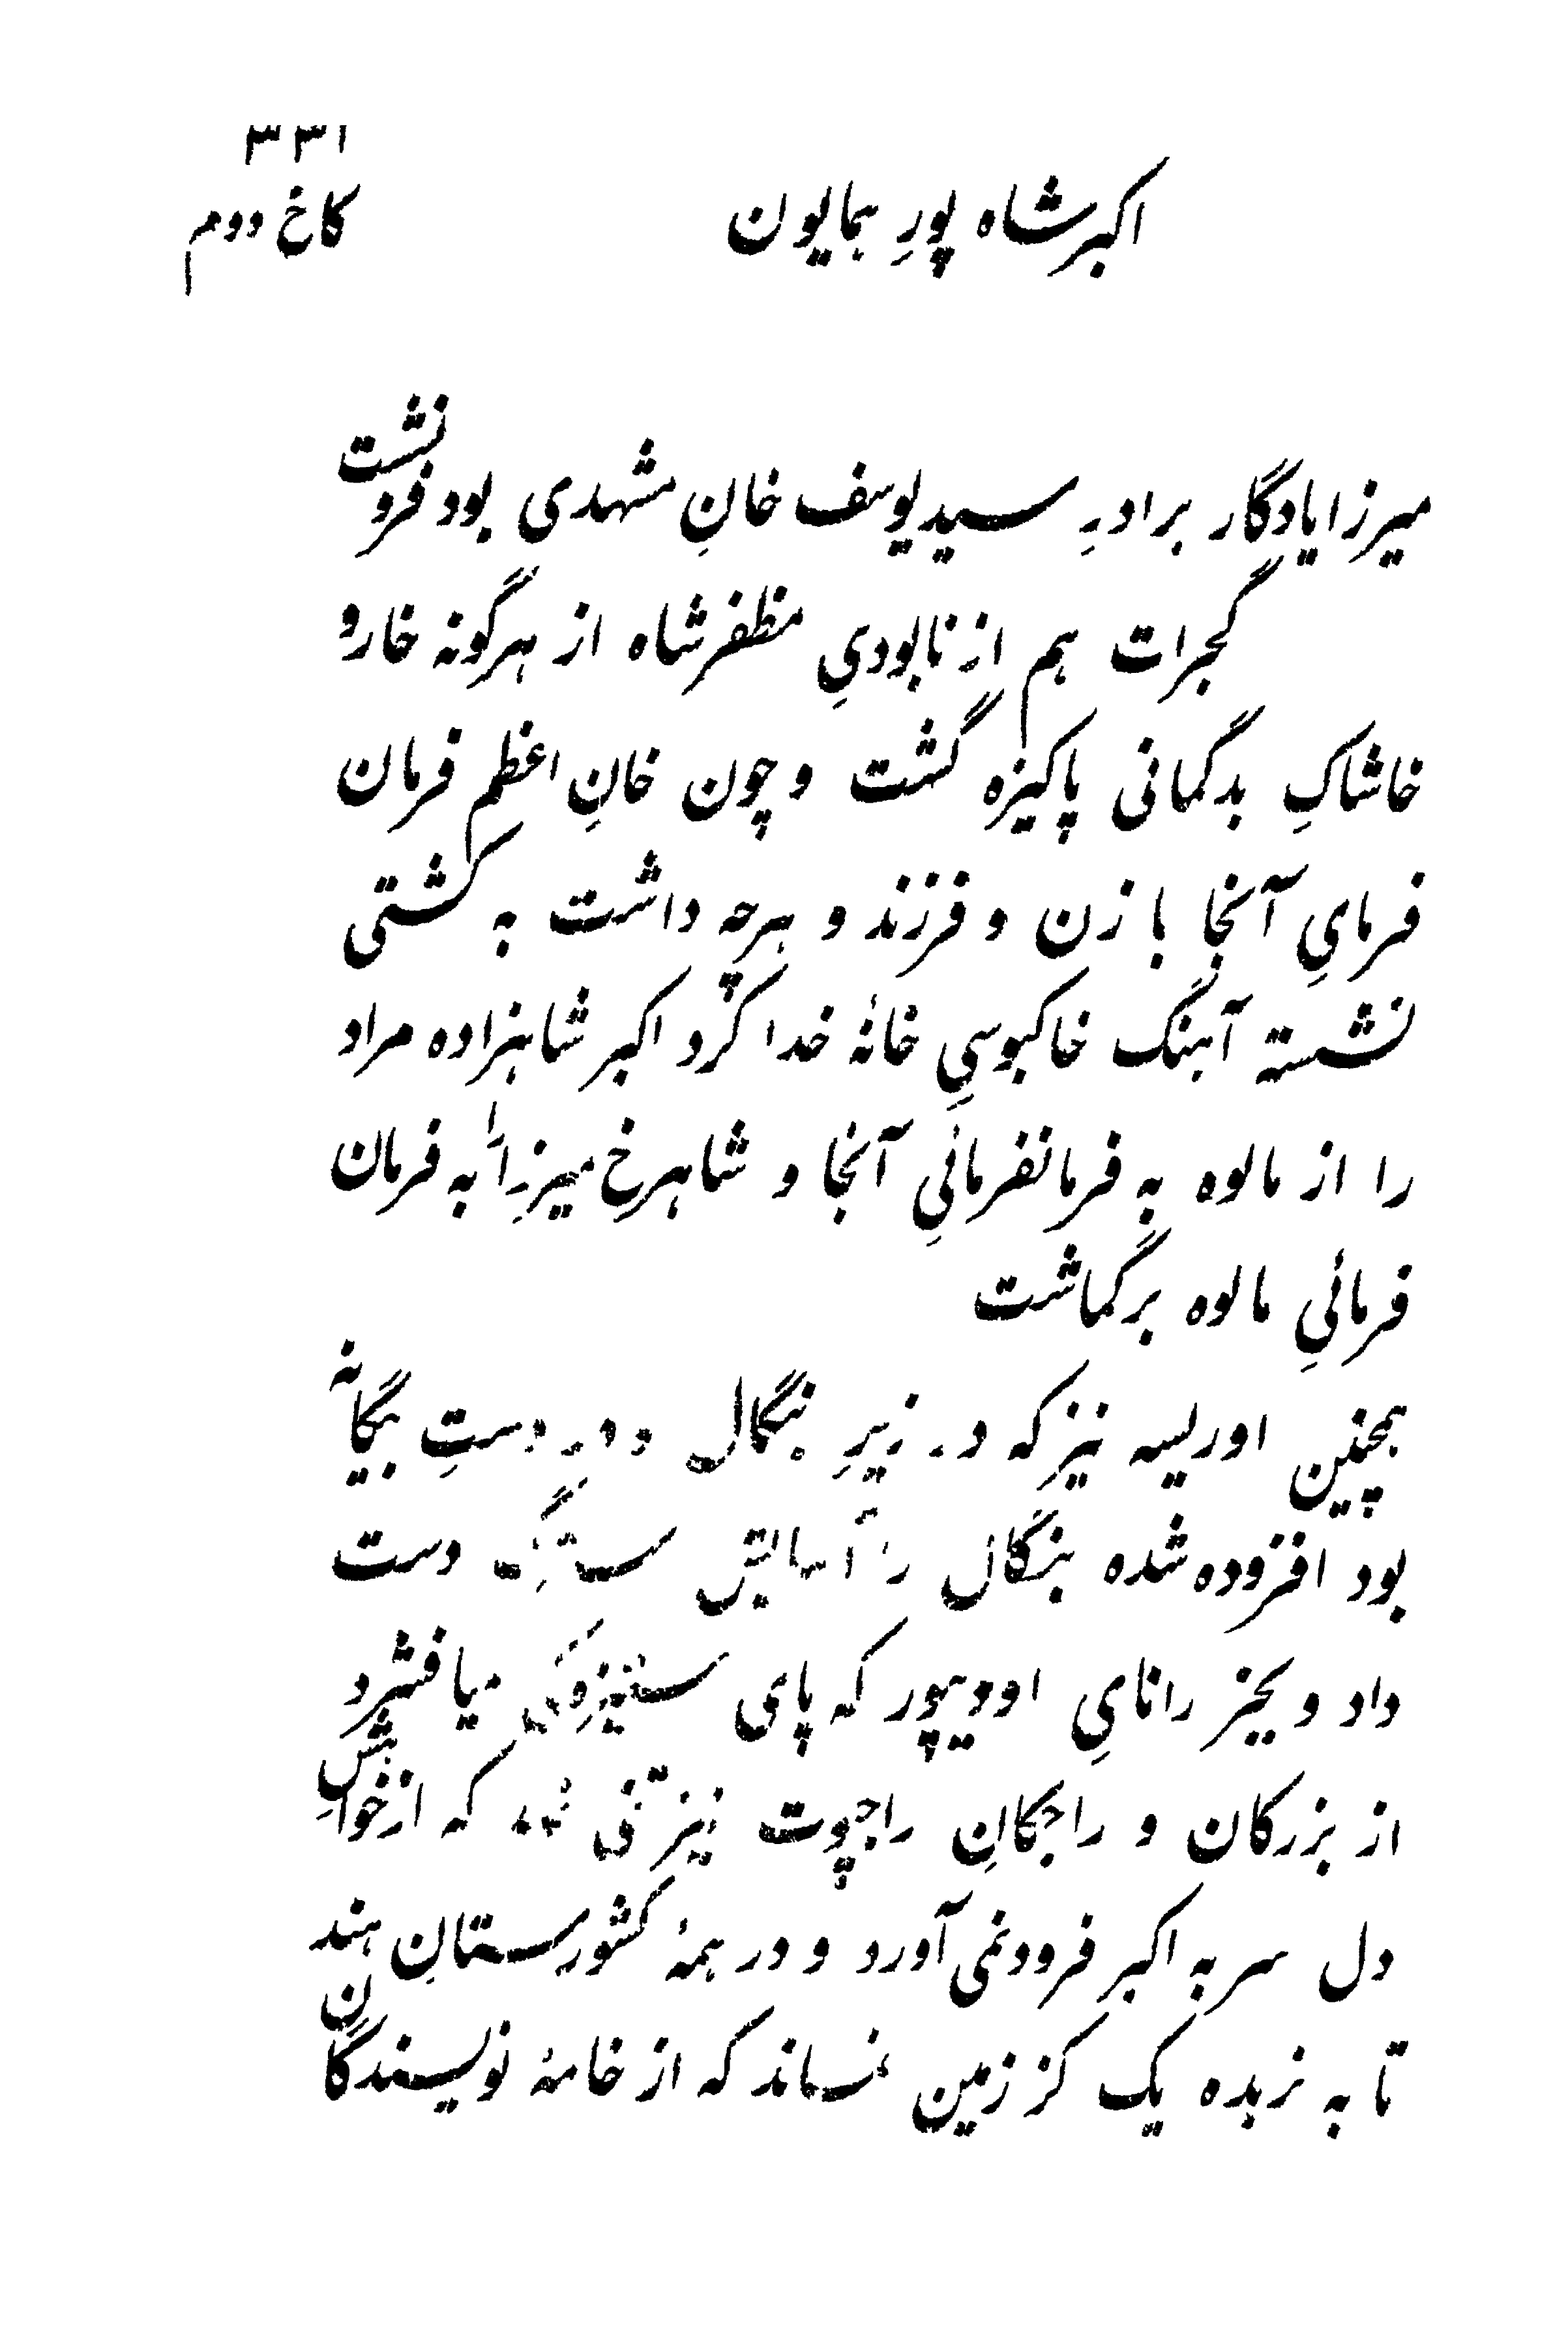 ۳۳۱
کاخ دوم
اکبرشاه پورِ همایون
میرزا یادگار برادرِ سید یوسف خانِ مشهدی بود فرونشست
گجرات هم از نابودیِ مظفرشاه از هرگونه خار و
خاشاکِ بدگمانی پاکیزه گشت و چون خانِ اعظم فرمان
فرمایِ آنجا با زن و فرزند و هرچه داشت به کشتی
نشسته آهنگ خاکبوسیِ خانهٔ خدا کرد اکبر شاهزاده مراد
را از مالوه به فرمانفرمائیِ آنجا و شاهرخ میرزا را به فرمان
فرمائیِ مالوه برگماشت
همچنین اوریسه نیز که در زیرِ بنگال و در دستِ بیگانه
بود افزوده شده بنگال را آسایش سترگ دست
داد و بجز رانایِ اودیپور که پای ستیزه‌گی میافشرد
از بزرگان و راجگانِ راجپوت نیز تنی نبود که از خواهشِ
دل سر به اکبر فرود نمی‌آورد و در همهٔ کشورستانِ هند
تا به نربده یک گز زمین نماند که از خامهٔ نویسندگان